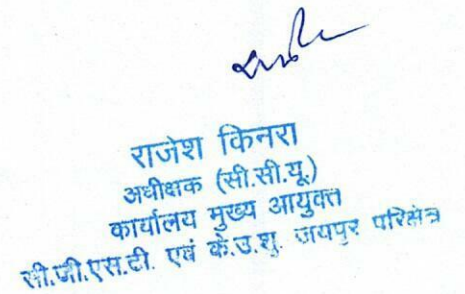 राजेश किनरा
अधीक्षक (सी.सी.यू.)
कार्यालय मुख्य आयुक्त
सी.जी.एस.टी. एवं के.उ.शु. जयपुर परिक्षेत्र